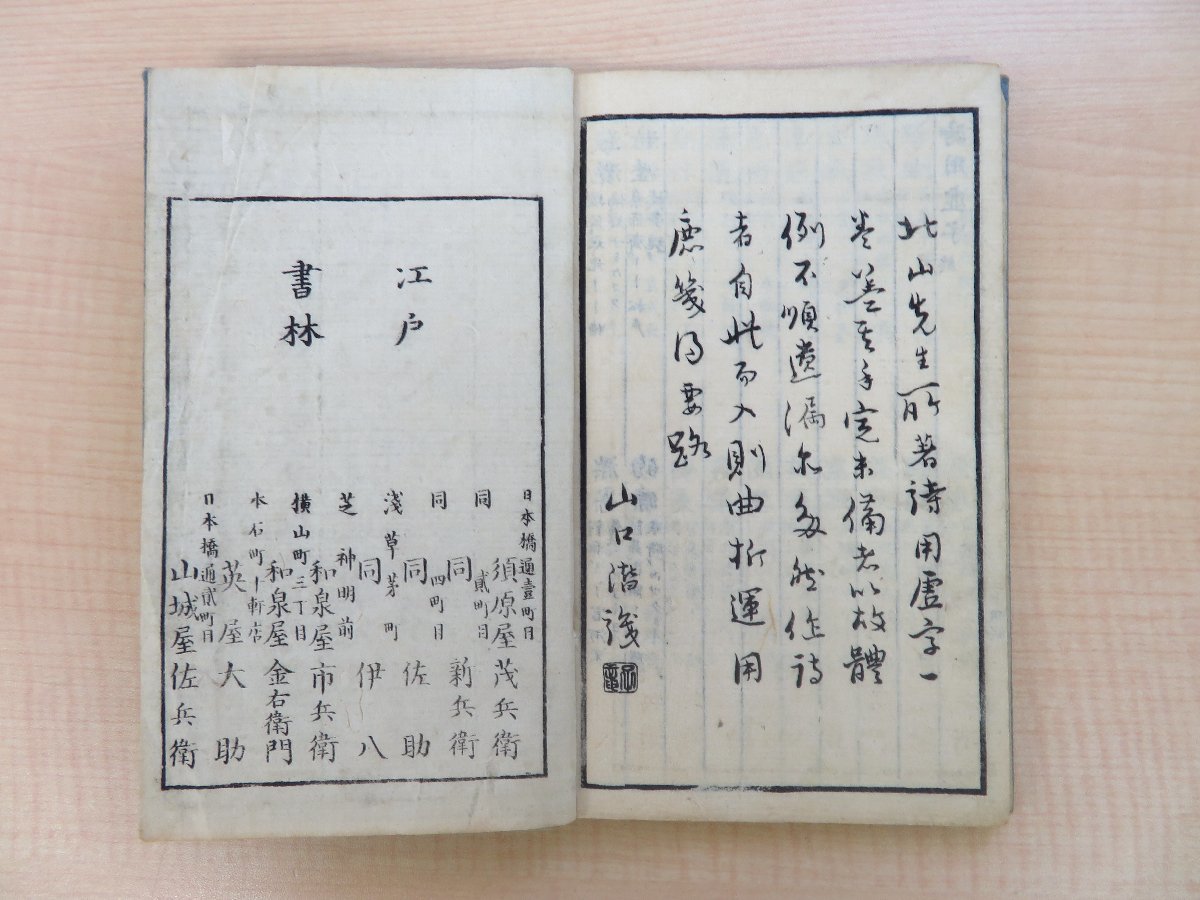 北山先生所著詩用虛字一
卷蓋其手定未備者以故體
例不順遺漏尓多然作詩
者自此而入則曲折運用
庶幾得要路
山口潛識
江戶
書林
日本橋通壹町目
須原屋茂兵衛
同 貳町目
同 新兵衛
同 四町目
同 佐助
淺草茅町
同 伊八
芝神明前
和泉屋市兵衛
橫山町三丁目
和泉屋金右衛門
本石町十軒店
英屋大助
日本橋通貳町目
山城屋佐兵衛